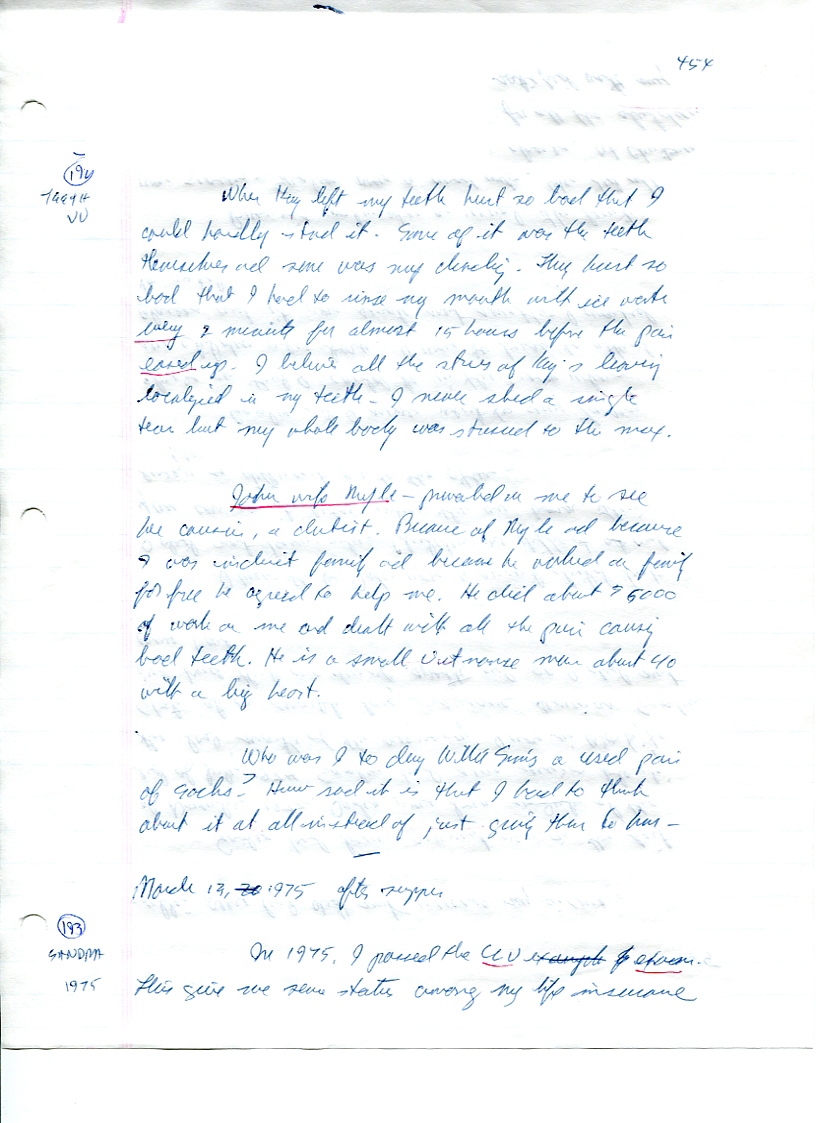 454
194
TEETH
VV
When Kay left my teeth hurt so bad that I
could hardly stand it. Some of it was the teeth
themselves and some was my clenching. They hurt so
bad that I had to rinse my mouth with ice water
every 2 minutes for almost 15 hours before the pain
eased up. I believe all the stress of Kay's leaving
localized in my teeth - I never shed a single
tear but my whole body was stressed to the max.
John wife - prevailed on me to see
her cousin, a dentist. Because of and because
I was indirect family and because he worked on family
for free he agreed to help me. He did about $5000
of work on me and dealt with all the pain causing
bad teeth. He is a small man about 40
with a big heart.
Who was I to deny Willie Sims a used pair
of socks? How sad it is that I had to think
about it at all instead of just giving them to him -
March 13, 20 1975 after supper
193
SANDRA
1975
In 1975, I passed the CLU example exam.
This give me some status among my life insurance